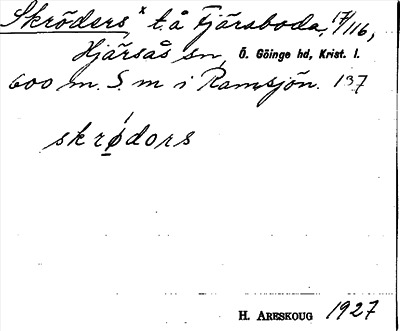 Skröders,ˣ t. å Fjärsboda, 17/116,
Hjärsås sn, Ö. Göinge hd, Krist. l.
600 m. S. m i Ramsjön. 137
skrødors
H. ARESKOUG 1927